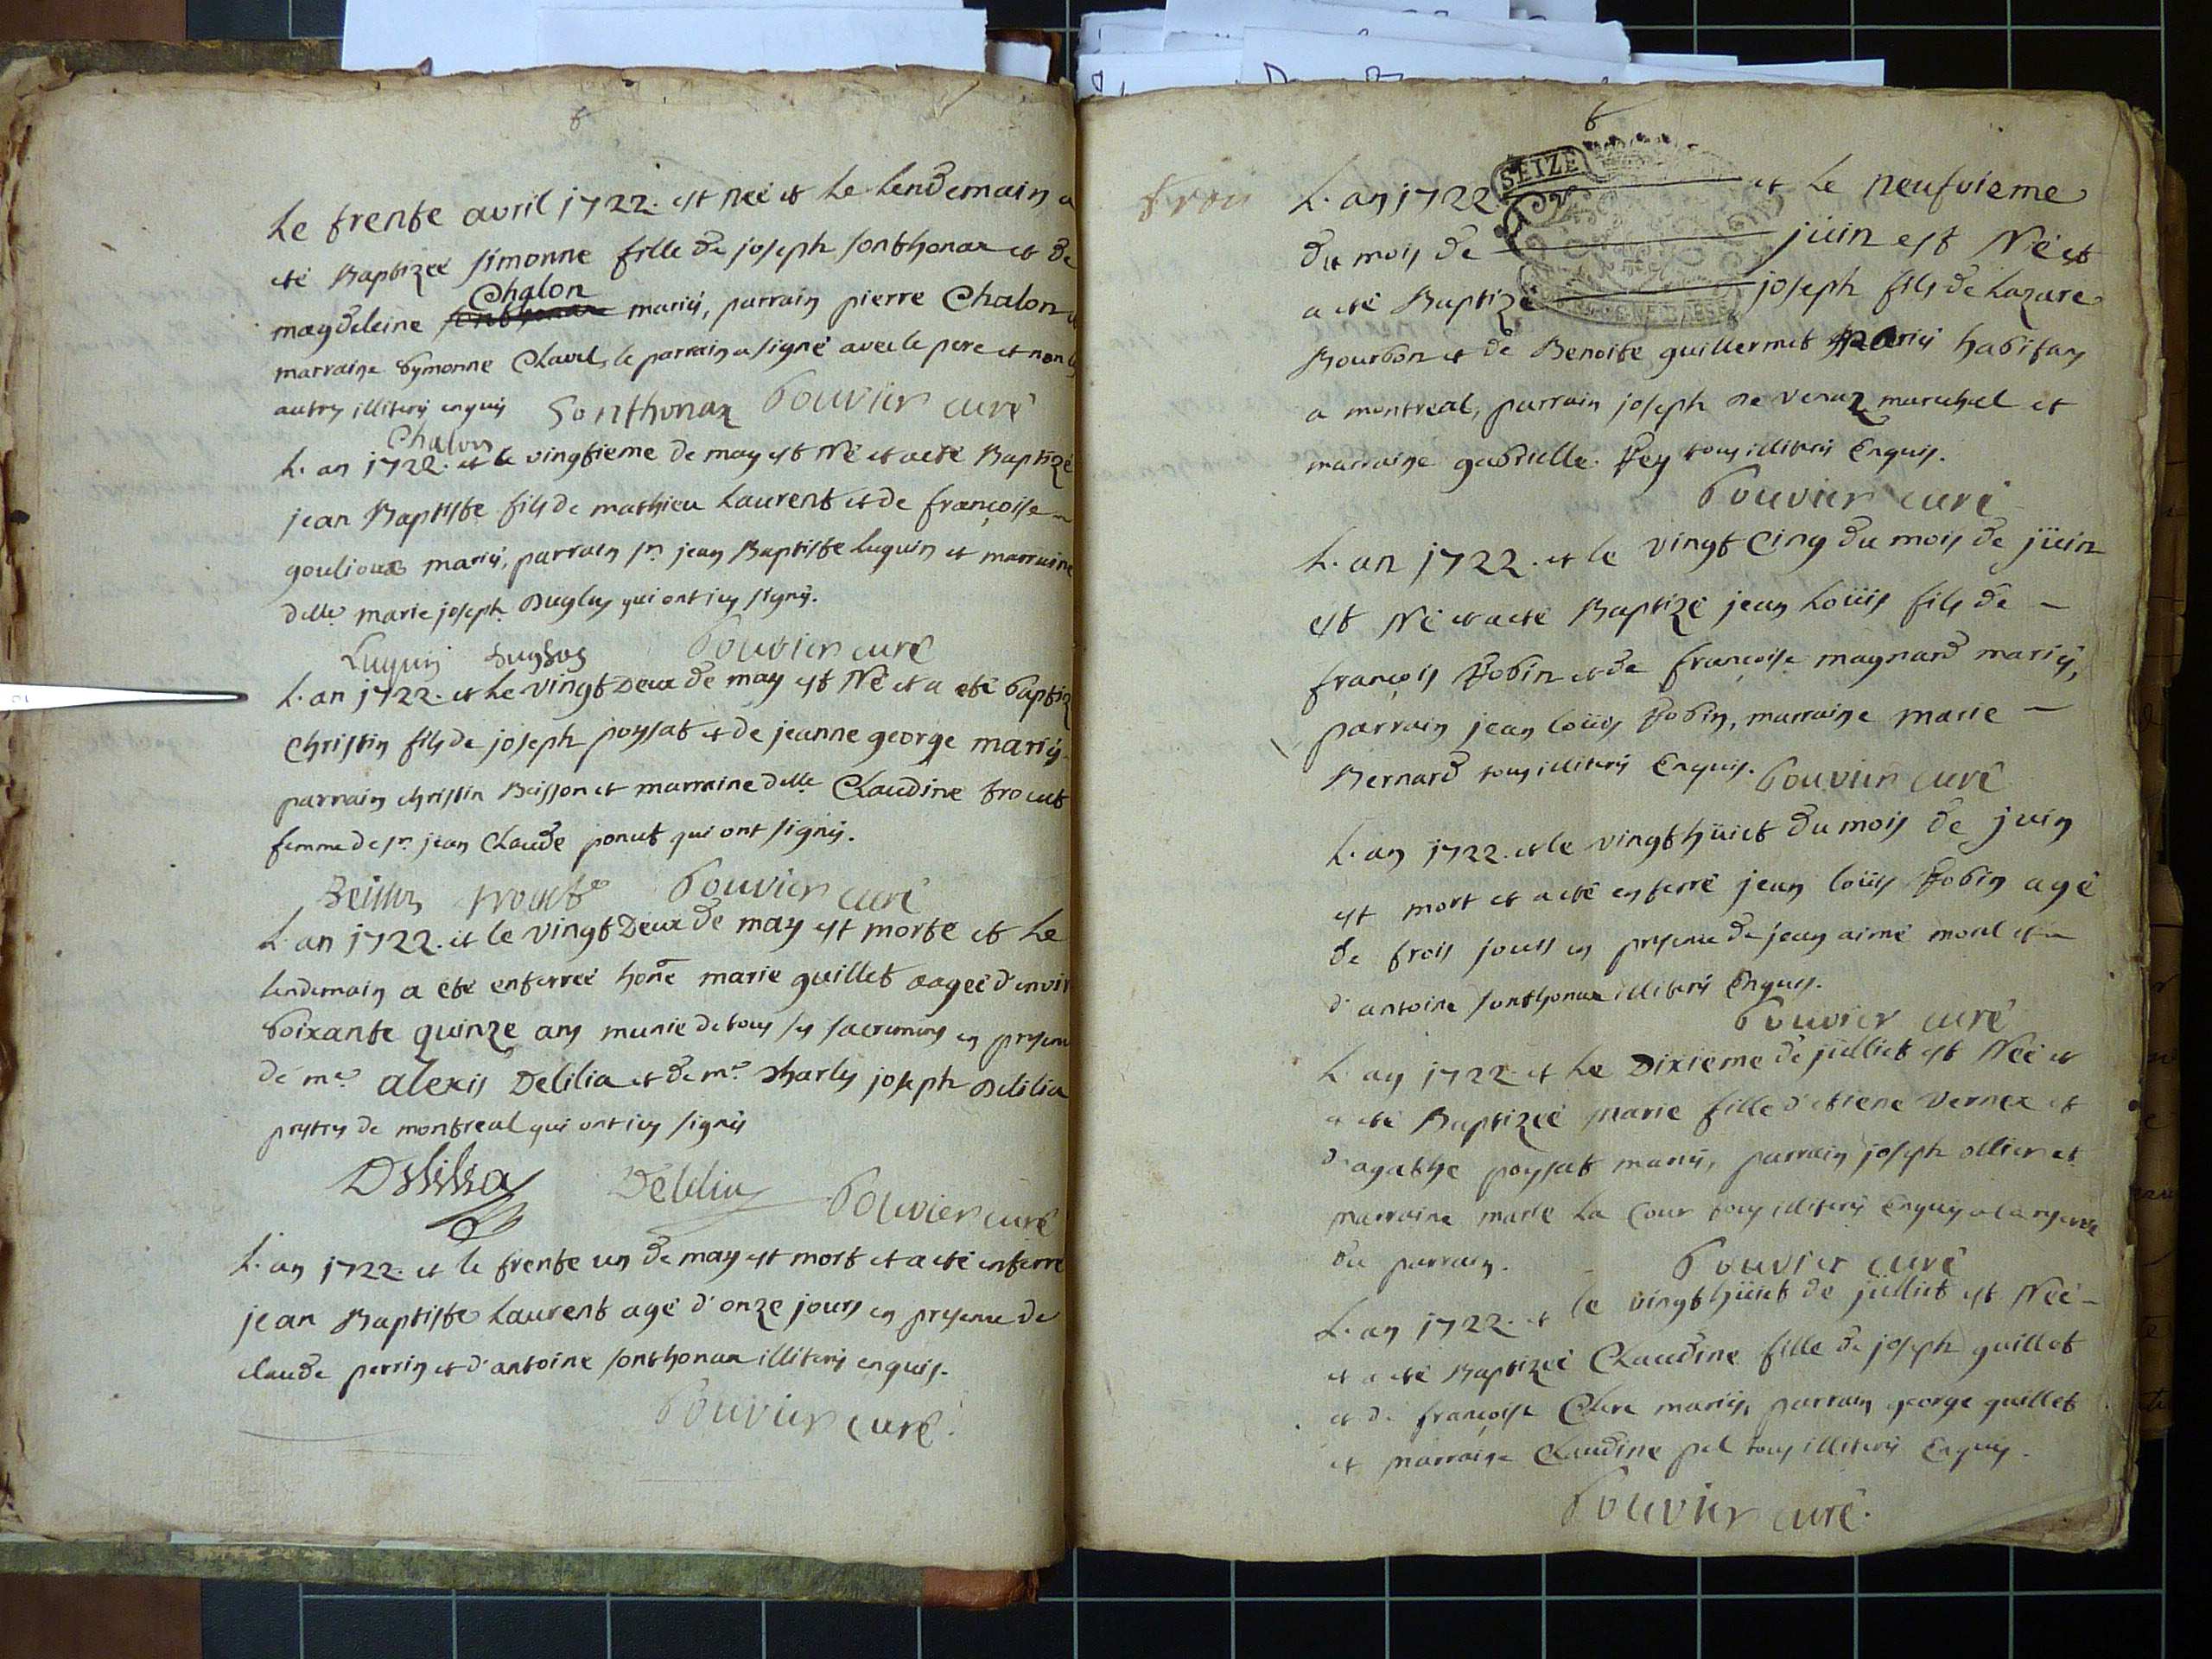 Le trente avril 1722. est neé et Le Lendemain a
eté Baptizeé simonne fille de joseph sonthonax et de
Chalon
magdeleine sonthonax mariés, parrain pierre Chalon et
marraine symonne Clavel, le parrain a signé avec le pere et non les
autres illiterés enquis Sonthonax Bouvier curé
Chalon
L'an 1722. et le vingtieme de may est Né et a eté Baptizé
jean Baptiste fils de mathieu Laurent et de françoise
goulioux mariés, parrain sr. jean Baptiste luquin et marraine
delle. marie joseph qui ont icy signés.
Luquin Bouvier curé
L'an 1722. et Le vingt Deux de may est Né et a eté baptizé
Christin fils de joseph poysat et de jeanne george mariés
parrain christin Buisson et marraine delle Claudine trocut
femme de sr. jean Claude poncet qui ont signés.
trocut Bouvier curé
L'an 1722. et le vingt Deux de may est morte et Le
lendemain a eté enterreé honne marie guillet aageé d'envir
soixante quinze ans munie de tous ses sacremens en presence
de mre. alexis Delilia et de mre. charles joseph Delilia
prestres de montreal qui ont icy signés
Delilia Delilia Bouvier curé
L'an 1722. et le trente un de may est mort et a eté enterré
jean Baptiste Laurent agé d'onze jours en presence de
claude perrin et d'antoine sonthonax illiterés enquis.
Bouvier curé.
6
SEIZE
trois
L'an 1722 et Le neufvieme
du mois de juin est Né et
a eté Baptizé joseph fils de Lazare
Bourbon et de Benoite guillermet mariés habitans
a montreal, parrain joseph de venaz marechal et
marraine gabrielle Rey tous illiterés Enquis.
Bouvier curé
L'an 1722. et le vingt Cinq du mois de juin
est Né et a eté Baptizé jean Loüis fils de
françois Robin et de françoise maynard mariés,
parrain jean loüis Robin, marraine marie
Bernard tous illiterés Enquis. Bouvier curé
L'an 1722. et le vingt hüict du mois de juin
est mort et a eté enterré jean loüis Robin agé
de trois jours en presence de jean aimé morel et
d'antoine sonthonax illiterés Enquis.
Bouvier curé
L'an 1722. et Le Dixieme de jüilliet est Neé et
a eté Baptizeé marie fille d'etiene vernex et
d'agathe poysat mariés, parrain joseph ollier et
marraine marie La Cour tous illiterés Enquis a la reserve
du parrain. Bouvier curé
L'an 1722. et le vingt hüict de jüilliet est Neé
et a eté Baptizeé Claudine fille de joseph guillet
et de françoise Clerc mariés, parrain george guillet
et marraine Claudine pel tous illiterés Enquis.
Bouvier curé.